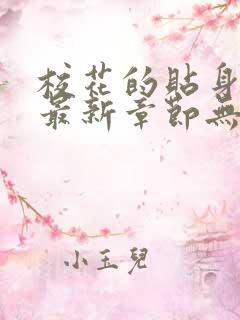 校花的貼身
最新章節無
小玉兒